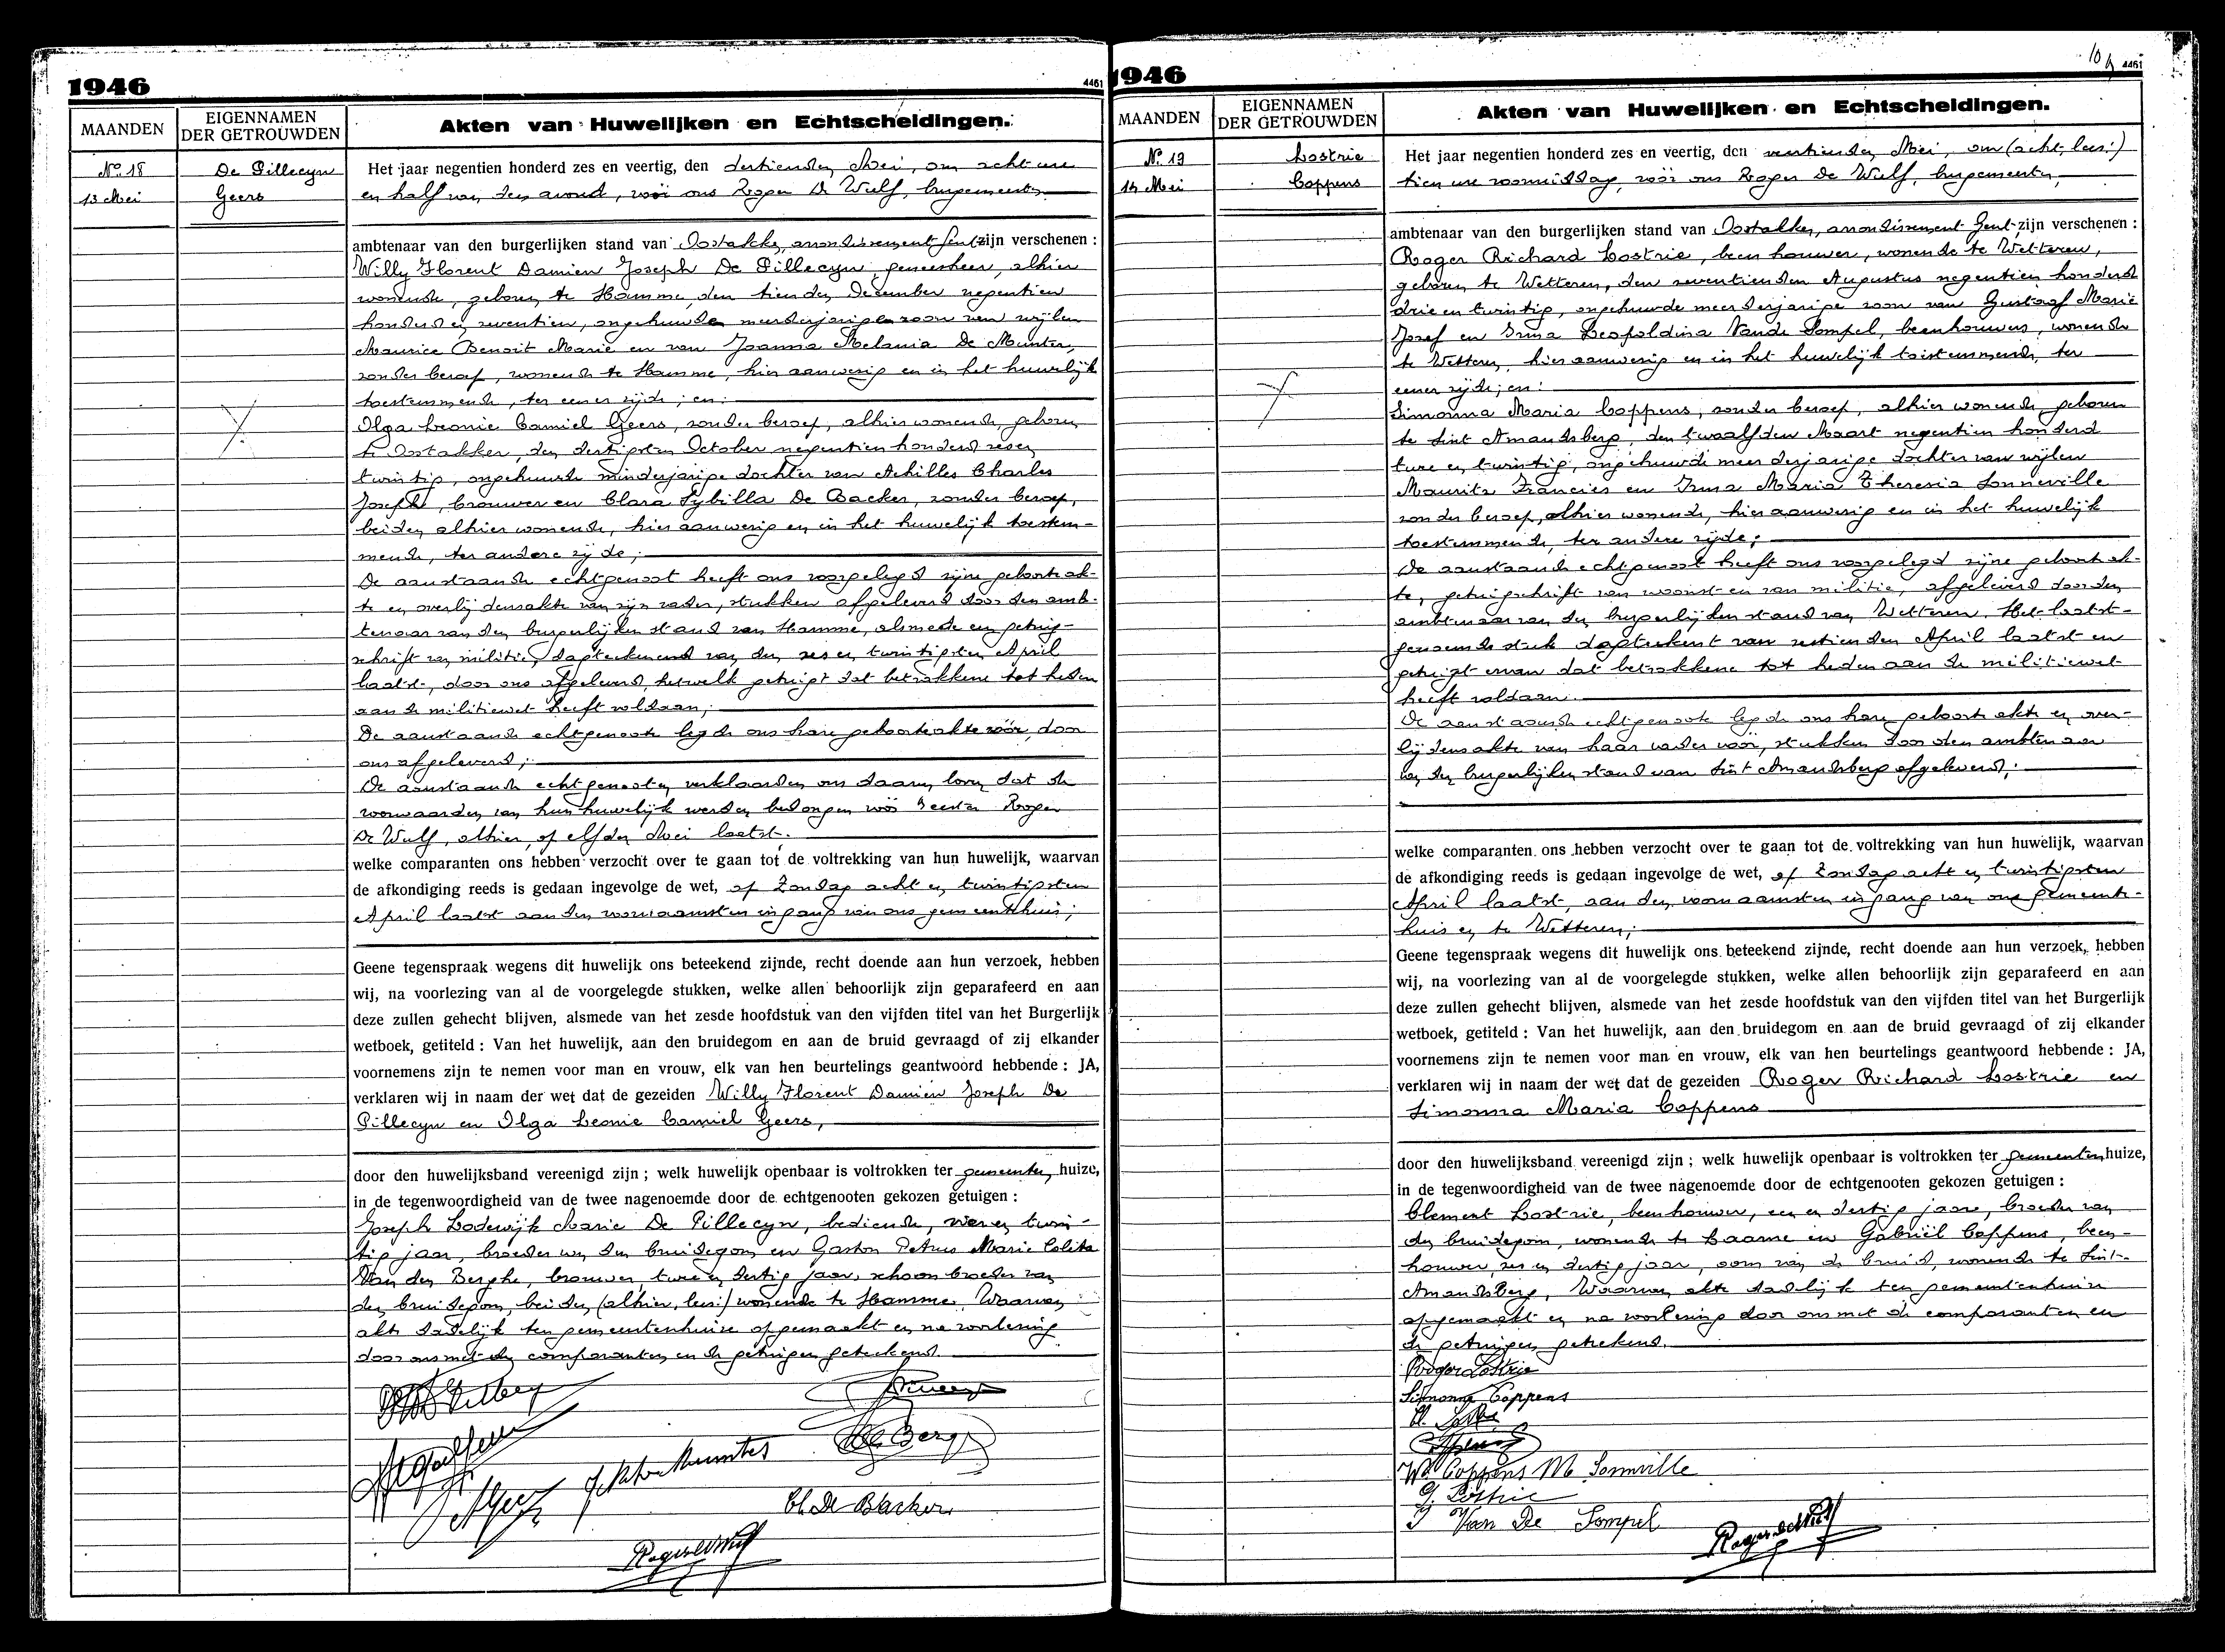 1946
4461
MAANDEN
EIGENNAMEN
DER GETROUWDEN
Akten van Huwelijken en Echtscheidingen.
No 18
13 Mei
De Pillecyn
Geers
Het jaar negentien honderd zes en veertig, den dertienden Mei, om acht ure
en half van den avond, vóór ons Roger De Wulf, burgemeester,
ambtenaar van den burgerlijken stand van Oostakker, arrondissement Gent zijn verschenen :
Willy Florent Damien Joseph De Pillecyn, geneesheer, alhier
wonende, geboren te Hamme, den tienden December negentien
honderd en zeventien, ongehuwde meerderjarige zoon van wijlen
Maurice Benoit Marie en van Joanna Melania De Munter,
zonder beroep, wonende te Hamme, hier aanwezig en in het huwelijk
toestemmende, ter eener zijde ; en :
Olga Leonie Camiel Geers, zonder beroep, alhier wonende, geboren
te Oostakker, den dertigsten October negentien honderd zes en
twintig, ongehuwde minderjarige dochter van Achilles Charles
Joseph, brouwer en Clara Sybilla De Backer, zonder beroep,
beiden alhier wonende, hier aanwezig en in het huwelijk toestem-
mende, ter andere zijde ;
De aanstaande echtgenoot heeft ons voorgelegd zijne geboorteak-
te en overlijdensakte van zijn vader, stukken afgeleverd door den amb-
tenaar van den burgerlijken stand van Hamme, alsmede een getuig-
schrift van militie, dagteekenend van den zes en twintigsten April
laatst, door ons afgeleverd, hetwelk getuigt dat betrokkene tot heden
aan de militiewet heeft voldaan ;
De aanstaande echtgenoote legde ons hare geboorteakte vóór, door
ons afgeleverd ;
De aanstaande echtgenooten verklaarden ons daarenboven dat de
voorwaarden van hun huwelijk werden bedongen vóór Meester Roger
De Wulf, alhier, op elfden Mei laatst.
welke comparanten ons hebben verzocht over te gaan tot de voltrekking van hun huwelijk, waarvan
de afkondiging reeds is gedaan ingevolge de wet, op Zondag acht en twintigsten
April laatst aan den voornaamsten ingang van ons gemeentehuis ;
Geene tegenspraak wegens dit huwelijk ons beteekend zijnde, recht doende aan hun verzoek, hebben
wij, na voorlezing van al de voorgelegde stukken, welke allen behoorlijk zijn geparafeerd en aan
deze zullen gehecht blijven, alsmede van het zesde hoofdstuk van den vijfden titel van het Burgerlijk
wetboek, getiteld : Van het huwelijk, aan den bruidegom en aan de bruid gevraagd of zij elkander
voornemens zijn te nemen voor man en vrouw, elk van hen beurtelings geantwoord hebbende : JA,
verklaren wij in naam der wet dat de gezeiden Willy Florent Damien Joseph De
Pillecyn en Olga Leonie Camiel Geers,
door den huwelijksband vereenigd zijn ; welk huwelijk openbaar is voltrokken ter gemeenten huize,
in de tegenwoordigheid van de twee nagenoemde door de echtgenooten gekozen getuigen :
Joseph Lodewijk Marie De Pillecyn, bediende, vier en twin-
tig jaar, broeder van den bruidegom en Gaston Petrus Marie Colita
Van den Berghe, brouwer, twee en dertig jaar, schoonbroeder van
den bruidegom, beiden (alhier, lees:) wonende te Hamme. Waarvan
akte dadelijk ten gemeentenhuize opgemaakt en na voorlezing
door ons met de comparanten en de getuigen geteekend.
Cl. De Backer
Roger De Wulf
1946
10
4461
MAANDEN
EIGENNAMEN
DER GETROUWDEN
Akten van Huwelijken en Echtscheidingen.
No 19
14 Mei
Lostrie
Coppens
Het jaar negentien honderd zes en veertig, den veertienden Mei, om (acht, lees:)
tien ure voormiddag, vóór ons Roger De Wulf, burgemeester,
ambtenaar van den burgerlijken stand van Oostakker, arrondissement Gent zijn verschenen :
Roger Richard Lostrie, beenhouwer, wonende te Wetteren,
geboren te Wetteren, den zeventienden Augustus negentien honderd
drie en twintig, ongehuwde meerderjarige zoon van Gustaaf Marie
Josef en Irma Leopoldina Van de Sompel, beenhouwers, wonende
te Wetteren, hier aanwezig en in het huwelijk toestemmende, ter
eener zijde ; en :
Simonna Maria Coppens, zonder beroep, alhier wonende, geboren
te Sint Amandsberg, den twaalfden Maart negentien honderd
twee en twintig, ongehuwde meerderjarige dochter van wijlen
Maurits Francies en Irma Maria Theresia Sonneville
zonder beroep, alhier wonende, hier aanwezig en in het huwelijk
toestemmende, ter andere zijde ;
De aanstaande echtgenoot heeft ons voorgelegd zijne geboorteak-
te, getuigschrift van woonst en van militie, afgeleverd door den
ambtenaar van den burgerlijken stand van Wetteren. Het laatst-
genoemde stuk dagteekent van zestienden April laatst en
getuigt ervan dat betrokkene tot heden aan de militiewet
heeft voldaan.
De aanstaande echtgenoote legde ons hare geboorteakte en over-
lijdensakte van haar vader vóór, stukken door den ambtenaar
van den burgerlijken stand van Sint Amandsberg afgeleverd ;
welke comparanten ons hebben verzocht over te gaan tot de voltrekking van hun huwelijk, waarvan
de afkondiging reeds is gedaan ingevolge de wet, op Zondag acht en twintigsten
April laatst, aan den voornaamsten ingang van ons gemeente-
huis en te Wetteren ;
Geene tegenspraak wegens dit huwelijk ons beteekend zijnde, recht doende aan hun verzoek, hebben
wij, na voorlezing van al de voorgelegde stukken, welke allen behoorlijk zijn geparafeerd en aan
deze zullen gehecht blijven, alsmede van het zesde hoofdstuk van den vijfden titel van het Burgerlijk
wetboek, getiteld : Van het huwelijk, aan den bruidegom en aan de bruid gevraagd of zij elkander
voornemens zijn te nemen voor man en vrouw, elk van hen beurtelings geantwoord hebbende : JA,
verklaren wij in naam der wet dat de gezeiden Roger Richard Lostrie en
Simonna Maria Coppens
door den huwelijksband vereenigd zijn ; welk huwelijk openbaar is voltrokken ter gemeenten huize,
in de tegenwoordigheid van de twee nagenoemde door de echtgenooten gekozen getuigen :
Clement Lostrie, beenhouwer, een en dertig jaar, broeder van
den bruidegom, wonende te Laarne en Gabriël Coppens, been-
houwer, zes en dertig jaar, oom van de bruid, wonende te Sint-
Amandsberg. Waarvan akte dadelijk ten gemeentenhuize
opgemaakt en na voorlezing door ons met de comparanten en
de getuigen geteekend.
Roger Lostrie
Simonna Coppens
Cl. Lostrie
Coppens
Wd Coppens M. Sonneville
G. Lostrie
I Van De Sompel
Roger De Wulf